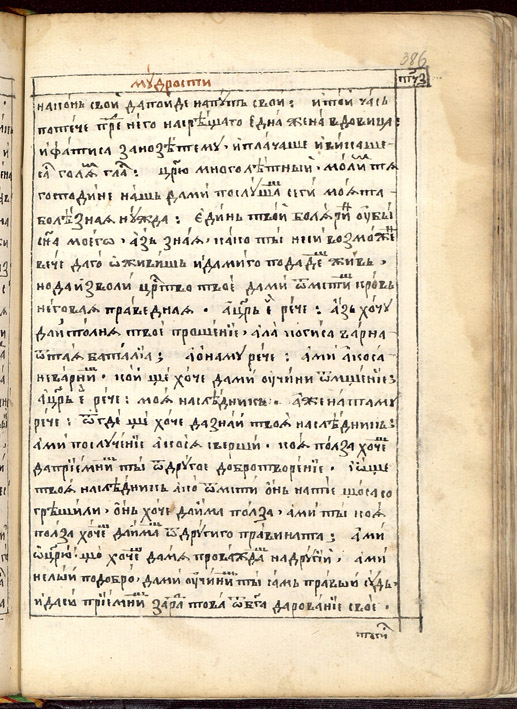 386
мꙋдрости
тпз
наконь свой да пойде на пꙋть свой : и той часъ
потече пре него насрѣщато една жена вдовица :
и фатиса за нозѣтемꙋ , и плачаше и викаше
са голѧ гла : царю многолѣтный , молитѧ
господине нашь дами послꙋша сеги моѧта
болѣзнаѧ нꙋжда : единь твой болѧри ѹбы
сна моего , азъ знаѧ , како ты неси возможе
вече даго ѡживишь и дамиго подаде живъ ,
но да изволи цртво твое дами ѿмсти кровъ
неговаѧ праведнаѧ . а црь е рече : азъ хочꙋ
да исполнѧ твое прошенїе , ала когиса варна
ѿ таѧ баталїа ; а она мꙋ рече : ами акоса
не варни , кой ще хоче дами ѹчини ѿмщенїе :
а црь е рече : моѧ наслѣдникъ . а жената мꙋ
рече : ѿ где ще хоче да знай твоѧ наслѣдникъ :
ами послꙋченїе ако сѧ сверши , коѧ полза хоче
да прїемни ты ѿ дрꙋгое добротворенїе . и ѡще
твоѧ наслѣдникъ ако ѿмсти онь на тїе щоса со
грѣшили , онь хоче дайма полза , ами ты коѧ
полза хоче дайма ѿ дрꙋгиго правината ; ами
ѡ црю , що хоче дамѧ проважда на дрꙋгїй , ами
нелый подобро , дами ѹчини ты самъ правый сꙋдъ ,
и даси прїемни зара това ѿ бга дарованїе свое .
тоги